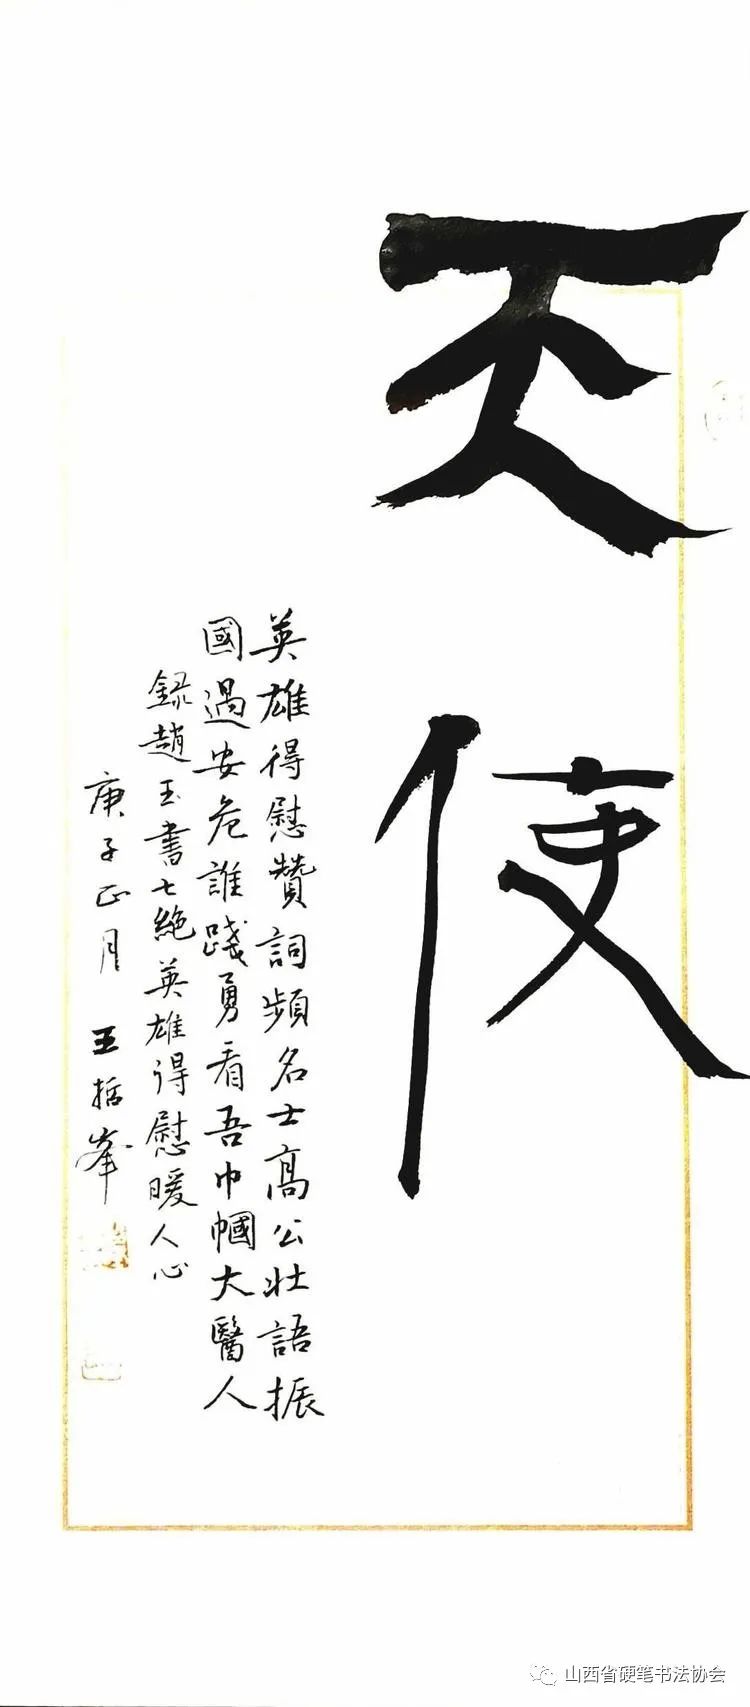 天使
英雄得慰贊詞頻名士高公壯語振
國遇安危誰踐勇看吾巾幗大醫人
録趙玉書七絶英雄得慰暖人心
庚子正月 王哲峯
山西省硬笔书法协会